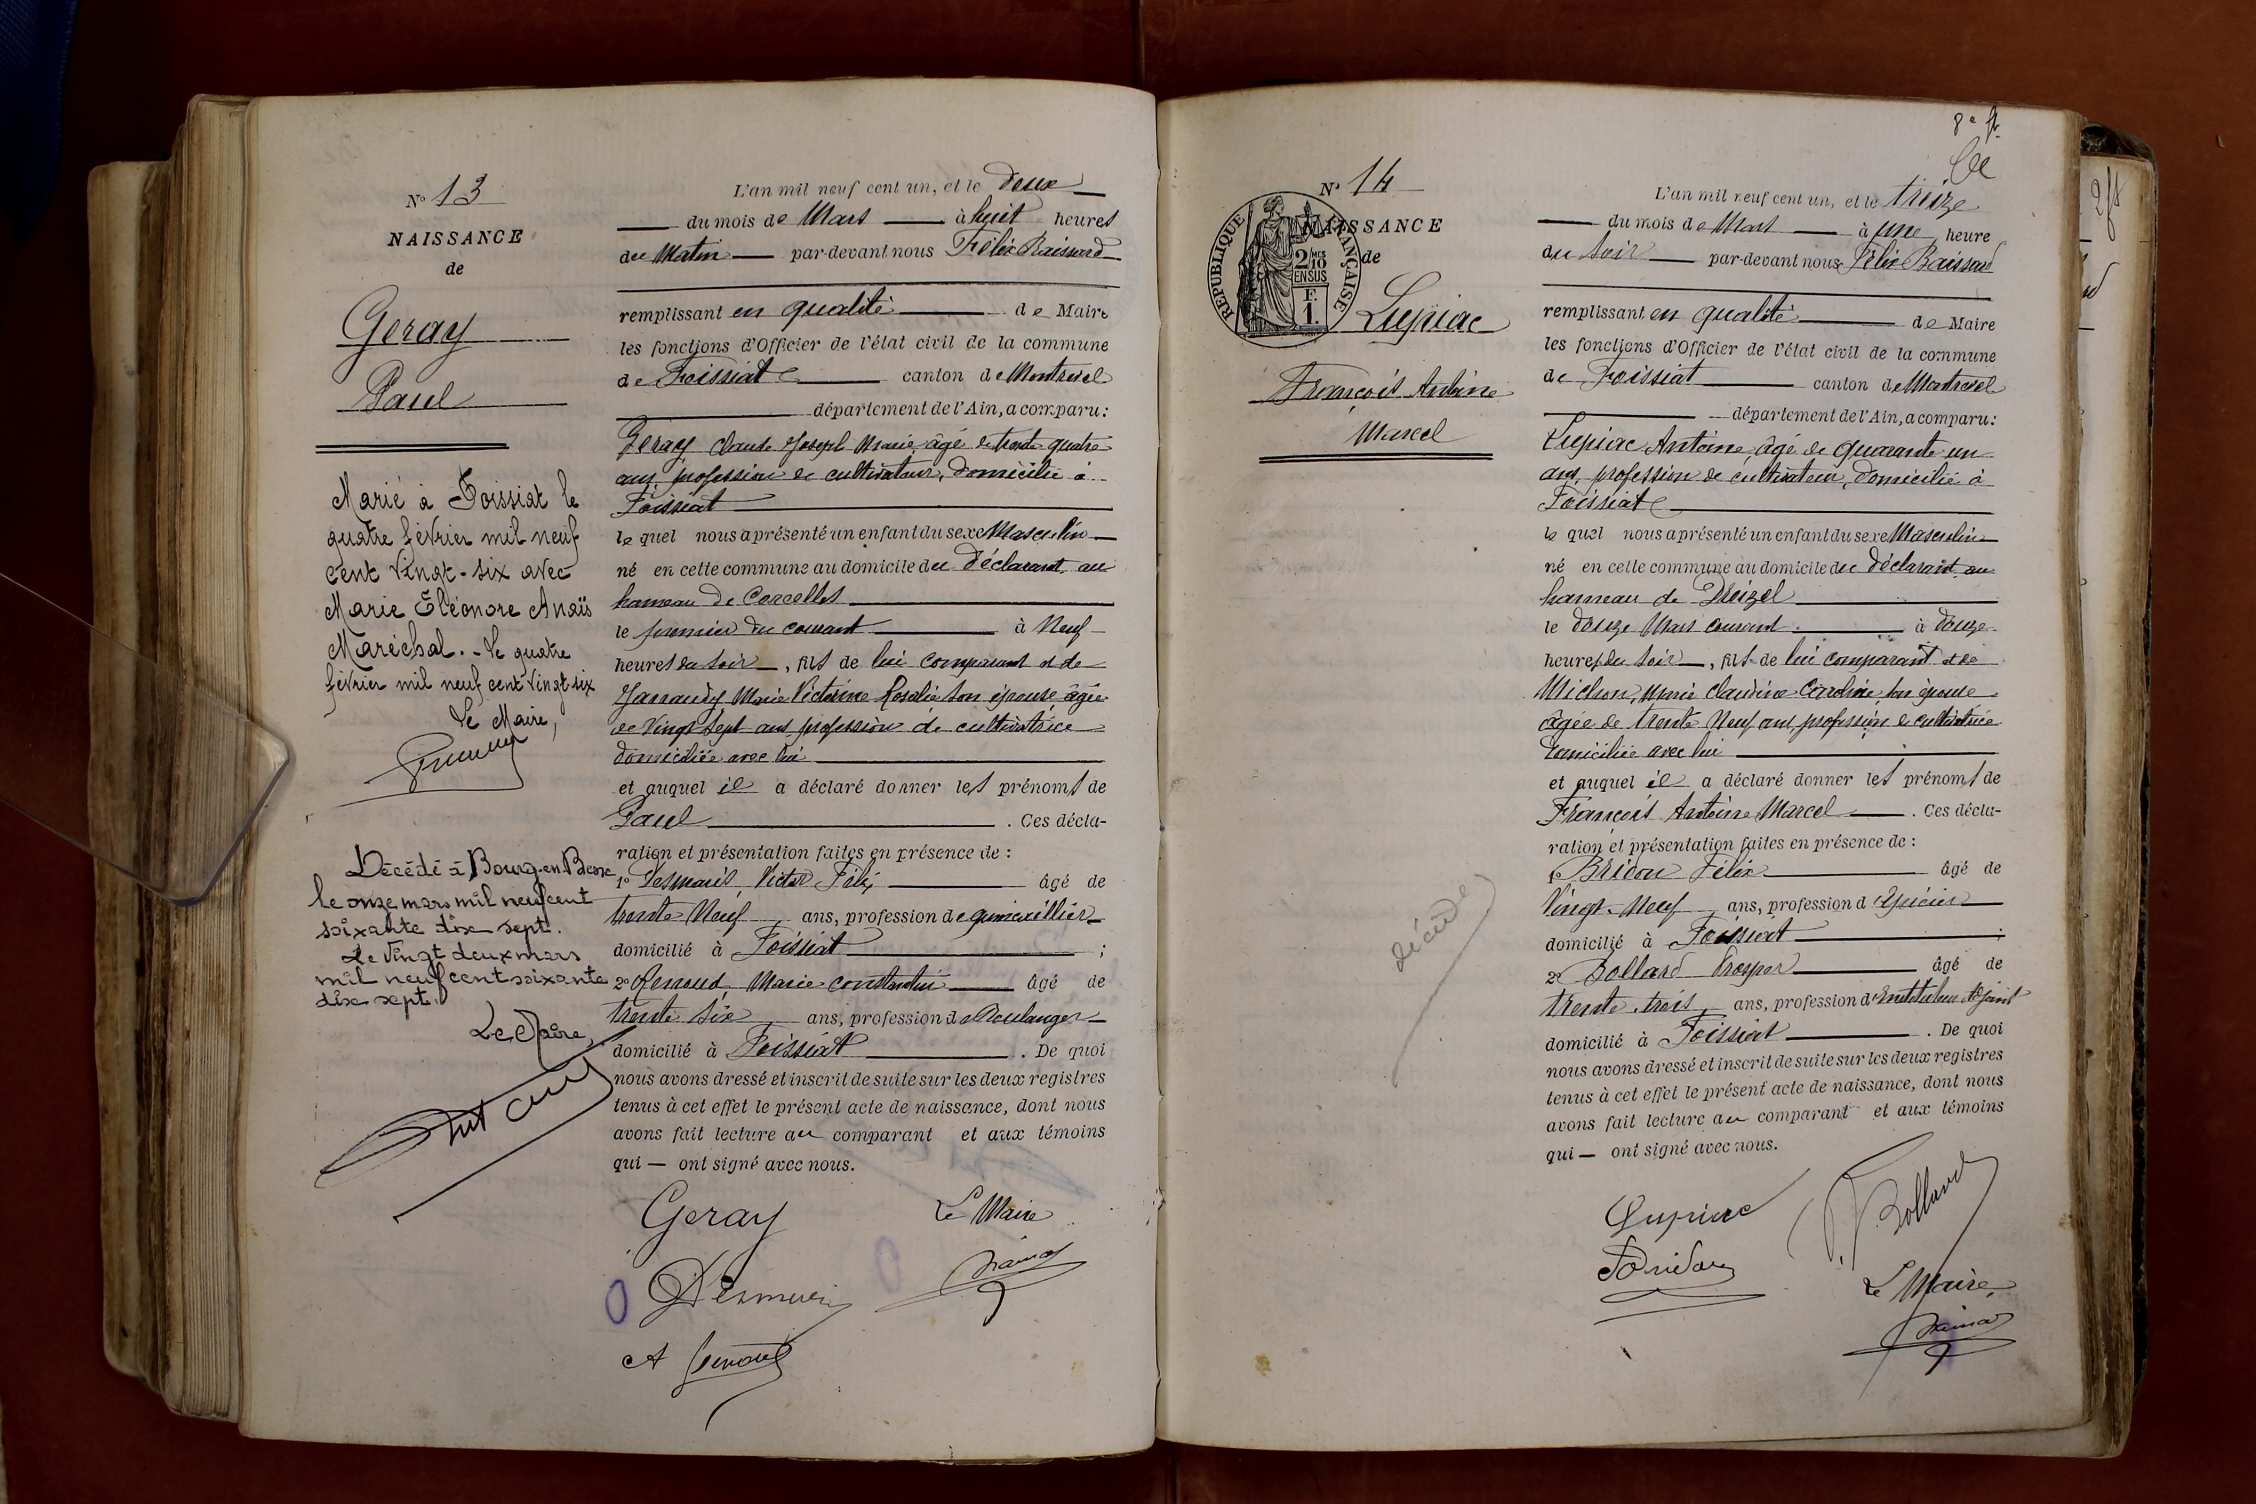 N° 13
NAISSANCE
de
Geray
Paul
Marié à Foissiat le
quatre février mil neuf
cent vingt-six avec
Marie Eléonore Anaïs
Maréchal. - Le quatre
février mil neuf cent vingt-six
Le Maire,
Décédé à Bourg-en-Bresse
le onze mars mil neuf cent
soixante dix sept.
Le vingt deux mars
mil neuf cent soixante
dix sept.
Le Maire,
L'an mil neuf cent un, et le deux
du mois de Mars à huit heures
du Matin par-devant nous Félix Raissard
remplissant en qualité de Maire
les fonctions d'Officier de l'état civil de la commune
de Foissiat canton de Montrevel
département de l'Ain, a comparu:
Geray Claude Joseph Marie, âgé de trente quatre
ans, profession de cultivateur, domicilié à
Foissiat
le quel nous a présenté un enfant du sexe Masculin
né en cette commune au domicile du Déclarant, au
hameau de Corcelles
le premier du courant à Neuf
heures du soir, fils de lui comparant et de
Marie Victorine Rosalie son épouse âgée
de Vingt sept ans profession de cultivatrice
domiciliée avec lui
et auquel il a déclaré donner les prénoms de
Paul. Ces décla-
ration et présentation faites en présence de:
1° Desmaris, Victor Félix âgé de
trente Neuf ans, profession de quincaillier
domicilié à Foissiat;
2° Renoud, Marie Constantin âgé de
trente six ans, profession de Boulanger
domicilié à Foissiat. De quoi
nous avons dressé et inscrit de suite sur les deux registres
tenus à cet effet le présent acte de naissance, dont nous
avons fait lecture au comparant et aux témoins
qui — ont signé avec nous.
Geray
Le Maire
A Renoud
8e ft
N° 14
NAISSANCE
de
RÉPUBLIQUE FRANÇAISE
2/10
EN SUS
F.
1.
Lupiac
François Antoine
Marcel
décédé
L'an mil neuf cent un, et le treize
du mois de Mars à une heure
du soir par-devant nous Félix Raissard
remplissant en qualité de Maire
les fonctions d'Officier de l'état civil de la commune
de Foissiat canton de Montrevel
département de l'Ain, a comparu:
Lupiac Antoine, âgé de quarante un
ans, profession de cultivateur, domicilié à
Foissiat
le quel nous a présenté un enfant du sexe Masculin
né en cette commune au domicile du déclarant, au
hameau de
le douze Mars courant à douze
heures du soir, fils de lui comparant et de
Michon, Marie Claudine Caroline, son épouse
âgée de trente Neuf ans, profession de cultivatrice
domiciliée avec lui
et auquel il a déclaré donner les prénoms de
François Antoine Marcel. Ces décla-
ration et présentation faites en présence de:
1° Bridon Félix âgé de
Vingt-Neuf ans, profession d'épicier
domicilié à Foissiat;
2° Bolland Prosper âgé de
trente-trois ans, profession d'Instituteur Adjoint
domicilié à Foissiat. De quoi
nous avons dressé et inscrit de suite sur les deux registres
tenus à cet effet le présent acte de naissance, dont nous
avons fait lecture au comparant et aux témoins
qui — ont signé avec nous.
Lupiac
P. Bolland
Bridon
Le Maire,